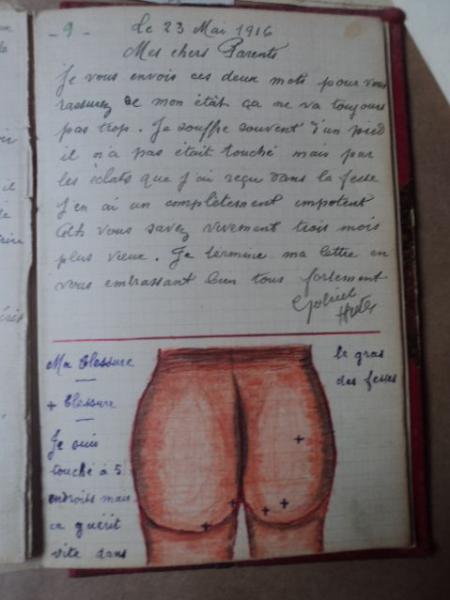 - 9 -
le 23 Mai 1916
Mes chers Parents
Je vous envois ces deux mots pour vous
rassurez de mon état ça ne va toujours
pas trop. Je souffre souvent d'un pied
il n'a pas était touché mais par
les éclats que j'ai reçu dans la fesse
J'en ai un complètement impotent
Ah vous savez vivement trois mois
plus vieux. Je termine ma lettre en
vous embrassant bien tous fortement
Gabriel
Ma blessure
+ blessure
Je suis
touché à 5
endroits mais
ca guérit
vite dans
le gras
des fesses